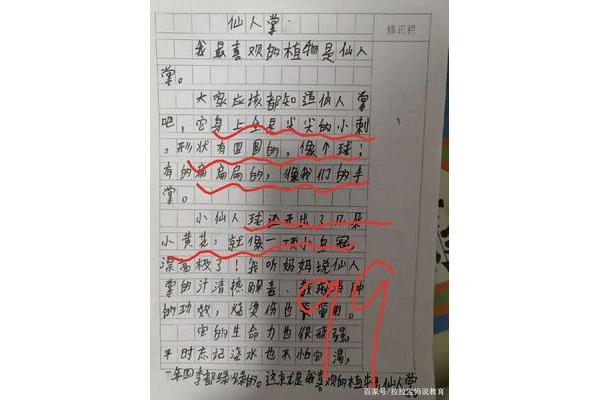 仙人掌
修正栏
我最喜欢的植物是仙人
掌。
大家应该都知道仙人掌
吧，它身上全是尖尖的小刺
，形状有圆圆的，像个球；
有的扁扁扁的，像我们的手
掌。
小仙人球还开出了几朵
小黄花，就像一顶小皇冠，
漂亮极了！我听妈妈说仙人
掌的汁清热解毒、散瘀消肿
的功效，烧烫伤也管用。
它的生命力也很顽强，
平时忘记浇水也不怕它渴，
一年四季都绿绿的。这就是我喜欢的植物仙人掌
99
百家号/拉拉宝妈说教育